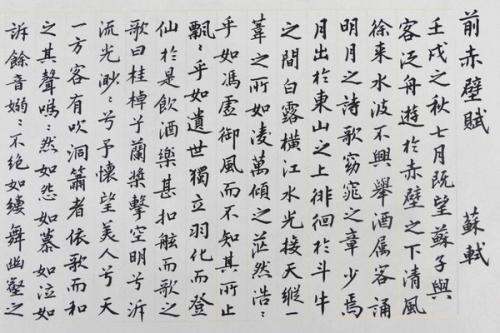 前赤壁賦 蘇軾
壬戌之秋七月既望蘇子與
客泛舟遊於赤壁之下清風
徐來水波不興舉酒属客誦
明月之詩歌窈窕之章少焉
月出於東山之上徘徊於斗牛
之間白露橫江水光接天縱一
葦之所如凌萬傾之茫然浩:
乎如馮虛御風而不知其所止
飄:乎如遺世獨立羽化而登
仙於是飲酒樂甚扣舷而歌之
歌曰桂棹兮蘭槳擊空明兮泝
流光渺:兮予懷望美人兮天
一方客有吹洞簫者依歌而和
之其聲嗚:然如怨如慕如泣如
訴餘音嫋:不絕如縷舞幽壑之